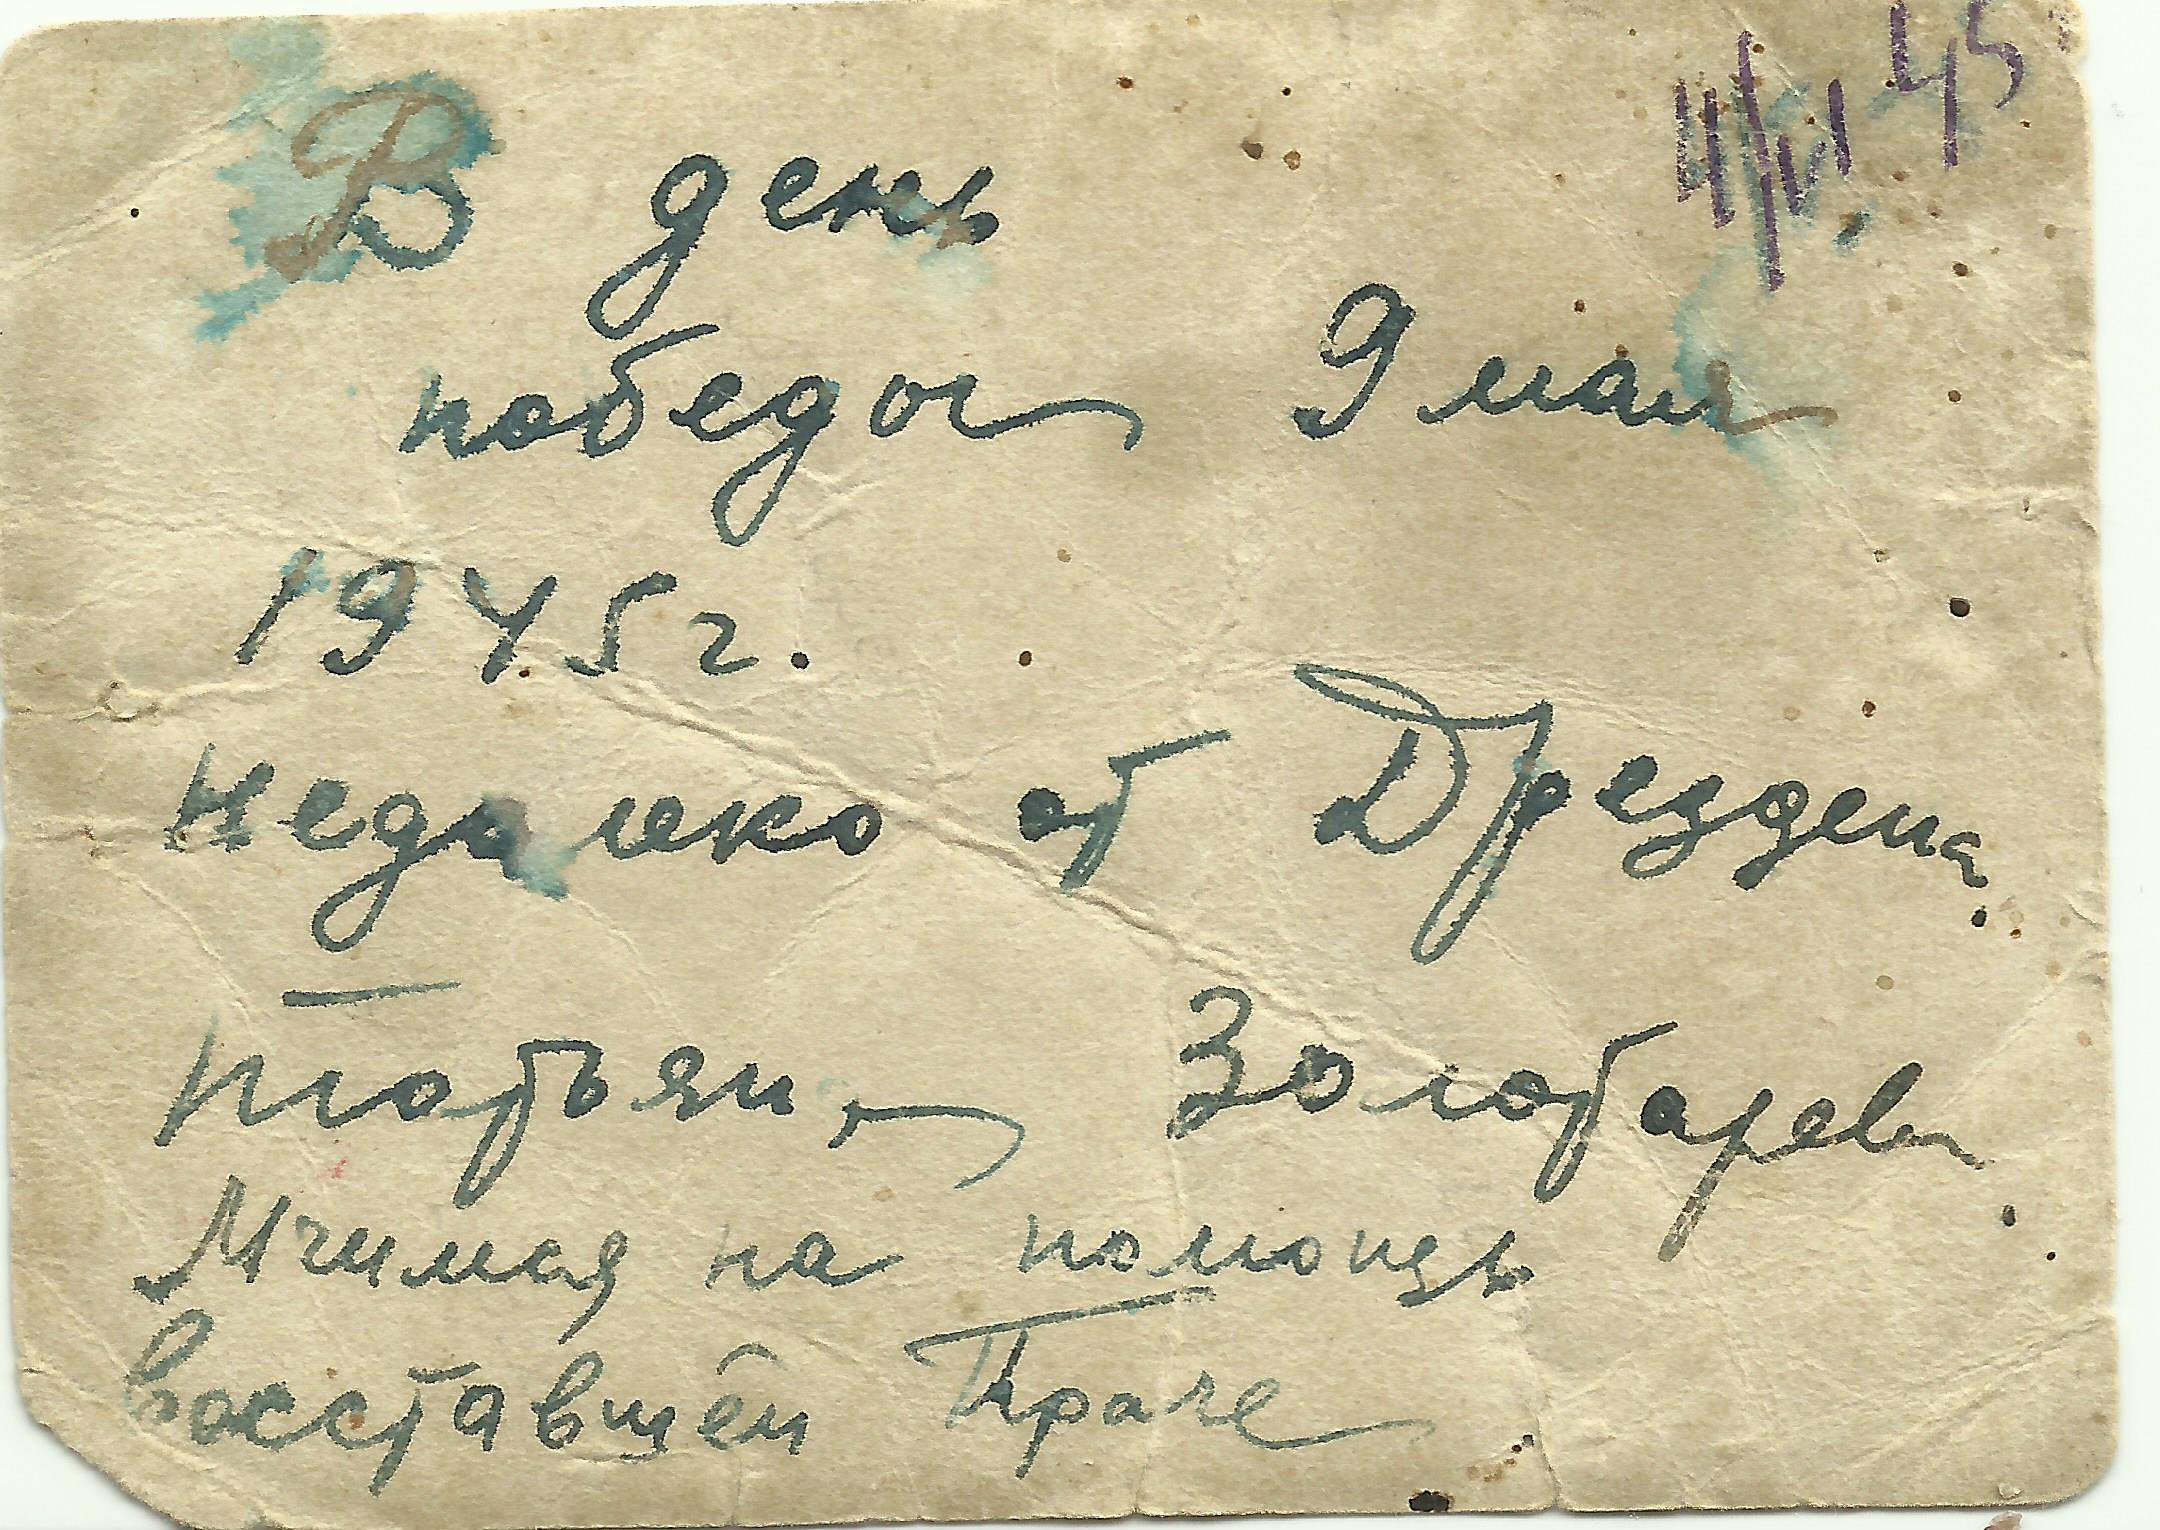 4/VI 45
В день
победы 9 мая
1945 г.
Недалеко от Дрездена.
Мчимся на помощь
восставшей Праге